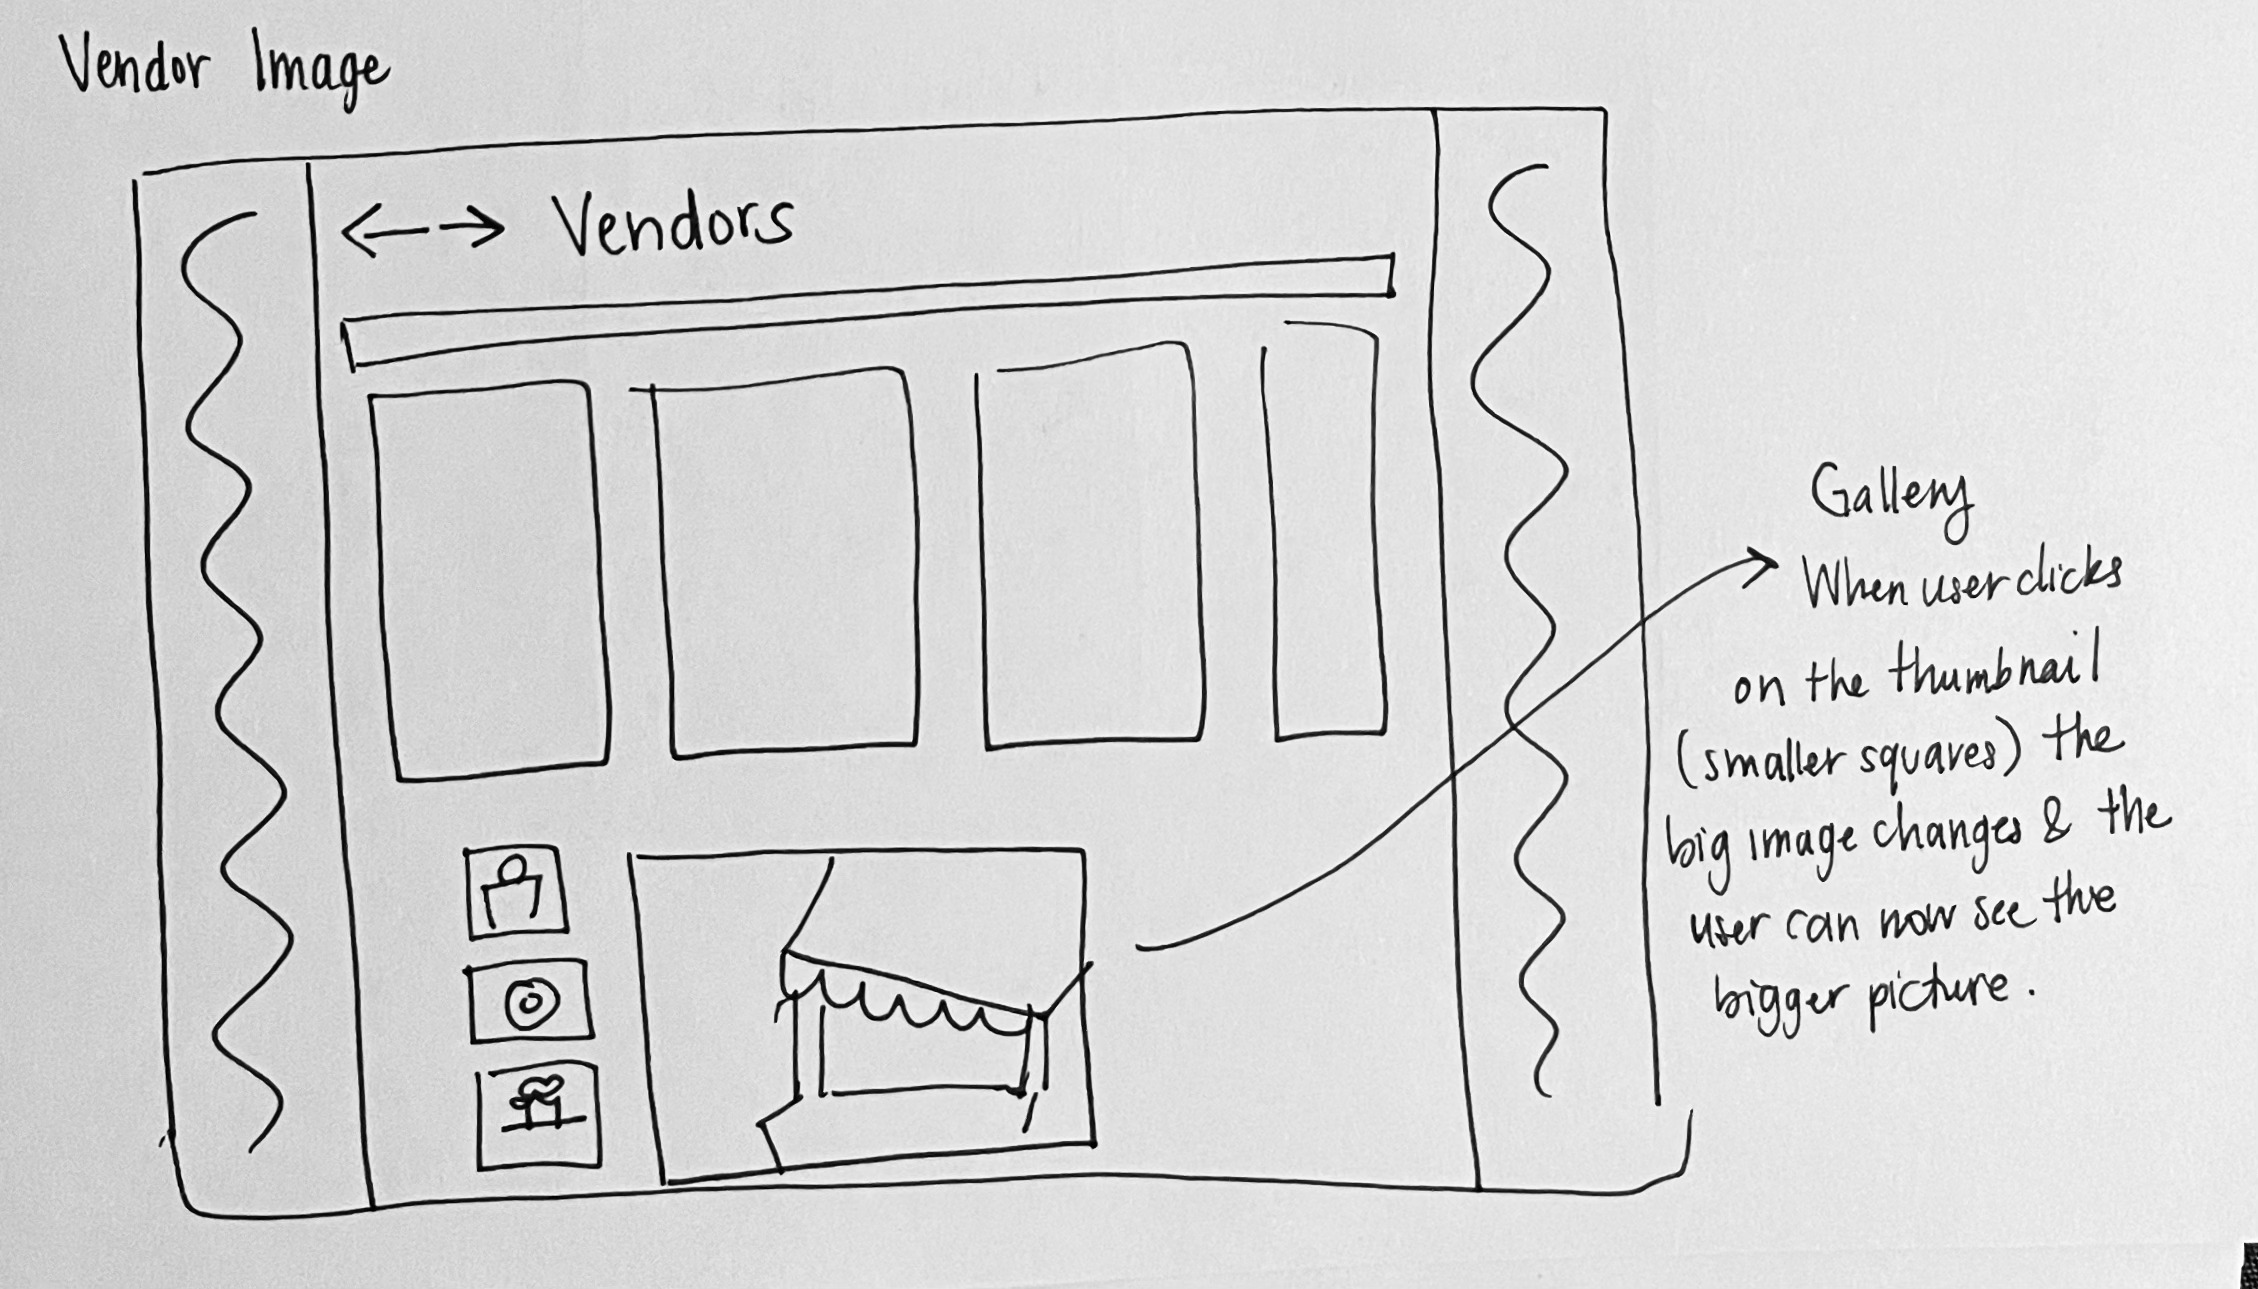 Vendor Image
Vendors
Gallery
When user clicks
on the thumbnail
(smaller squares) the
big image changes & the
user can now see the
bigger picture.